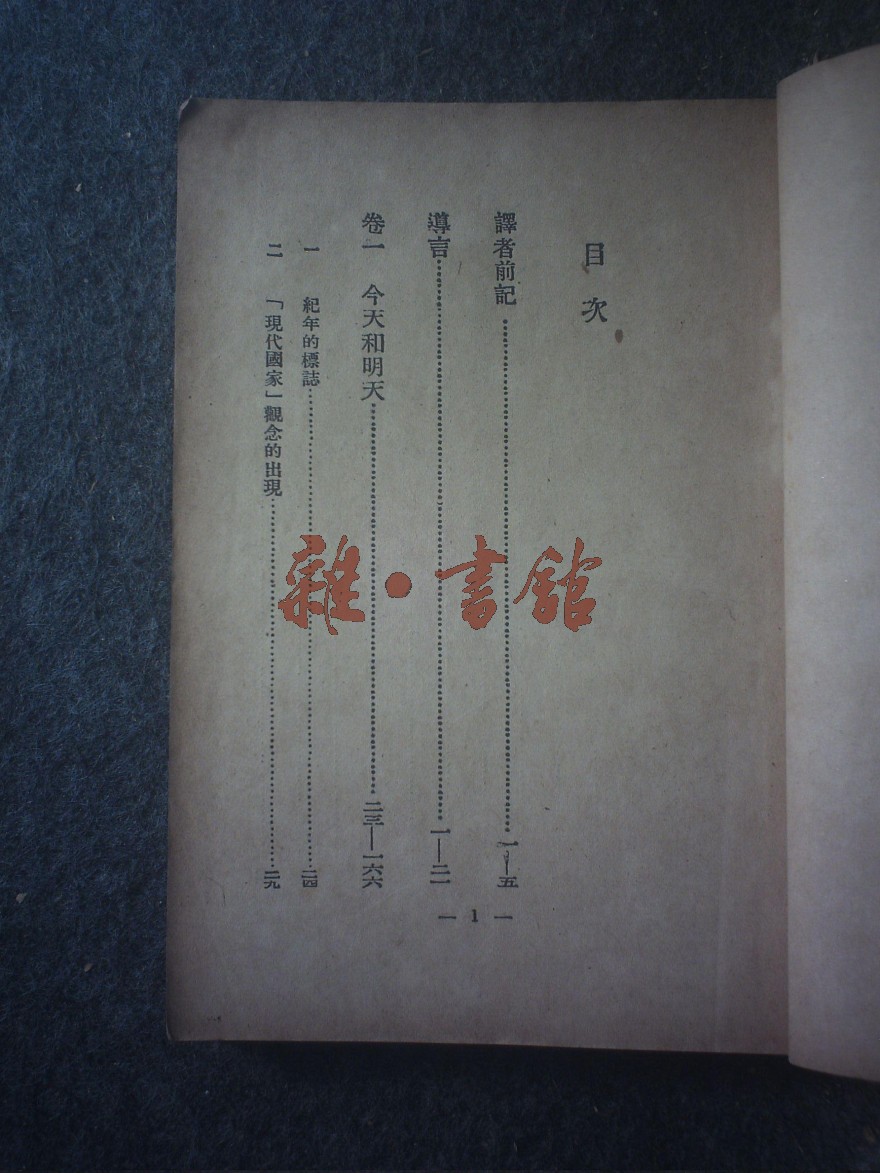 目次
譯者前記……一—五
導言……一—二一
卷一 今天和明天……二三—一六六
一 紀年的標誌……二四
二 「現代國家」觀念的出現……二九
— 1 —
雜·書館